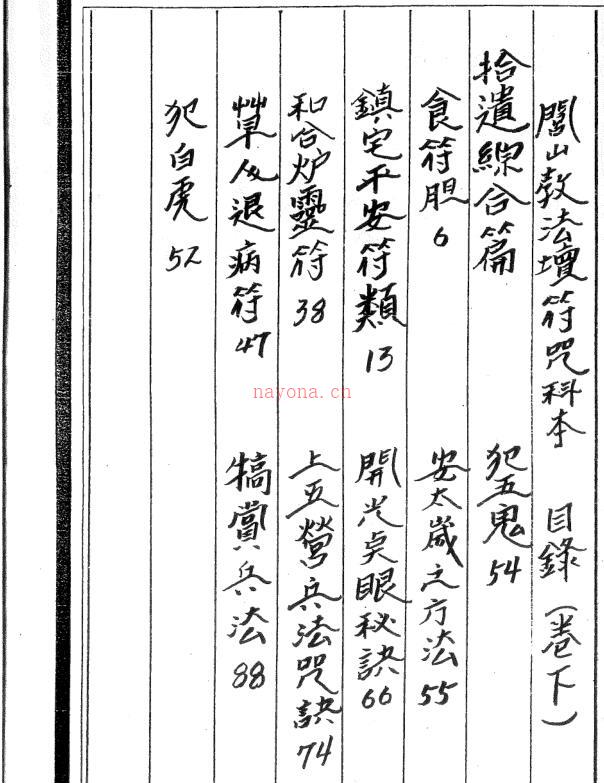 閭山教法壇符咒科本 目錄(卷下)
拾遺綜合篇 犯五鬼 54
食符胆 6 安太歲之方法 55
鎮宅平安符類 13 開光点眼秘訣 66
和合炉靈符 38 上五營兵法咒訣 74
草人退病符 47 犒賞兵法 88
犯白虎 52
nayona.cn